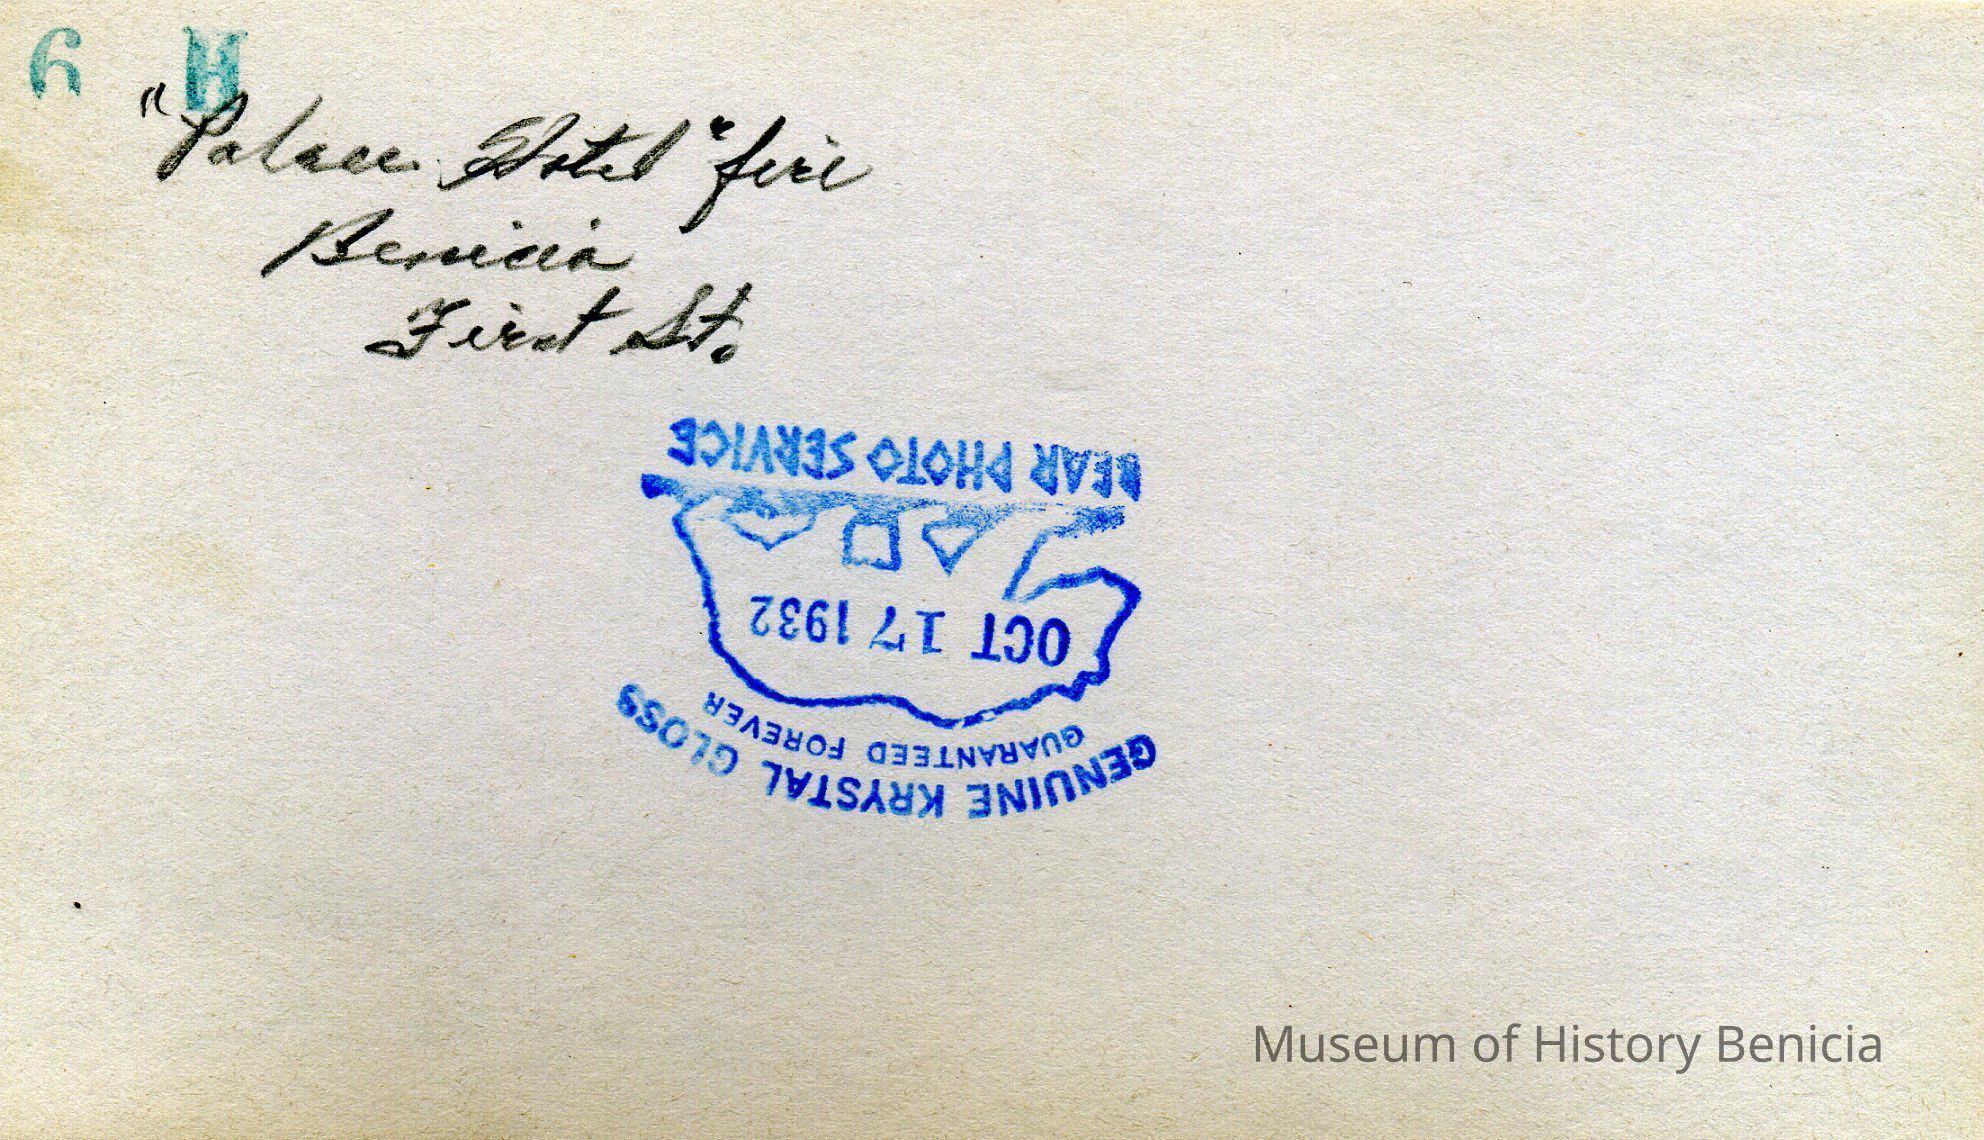 6 H
"Palace Hotel" fire
Benicia
First St.
GENUINE KRYSTAL GLOSS
GUARANTEED FOREVER
OCT 17 1932
BEAR PHOTO SERVICE
Museum of History Benicia